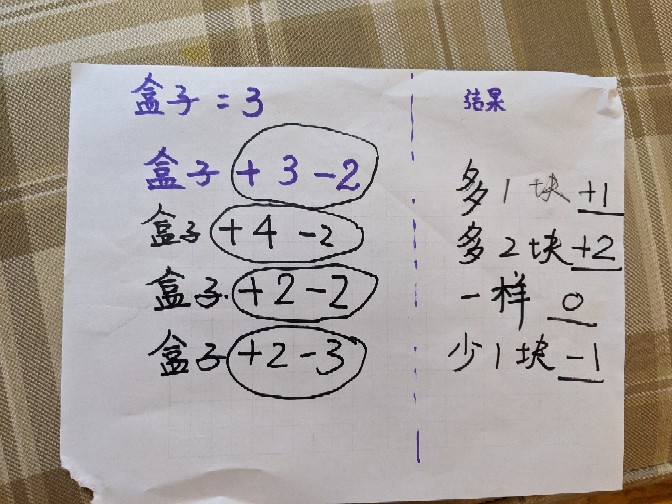 盒子 = 3 结果
盒子 +3 -2 多1块 +1
盒子 +4 -2 多2块 +2
盒子 +2 -2 一样 0
盒子 +2 -3 少1块 -1